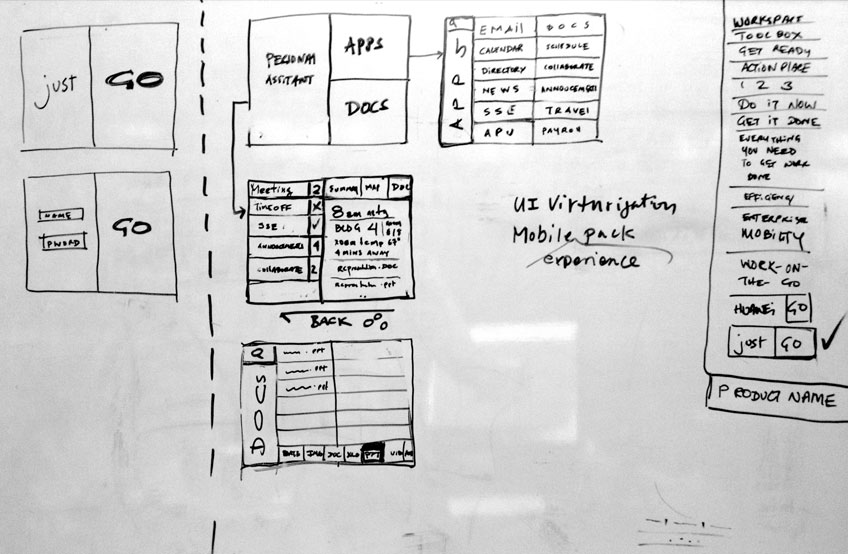 just GO
NAME
PWORD
GO
PERSONAL
ASSITANT
APPS
DOCS
APPS
EMAIL DOCS
CALENDAR SCHEDULE
DIRECTORY COLLABORATE
NEWS ANNOUCEMENT
SSE TRAVEL
APV PAYROLL
Meeting 2
TIMEOFF X
SSE ✓
ANNOUCEMENT 4
COLLABORATE 2
Summary MAP DOC
8am mtg
BLDG 4
room temp 67°
4 MINS AWAY
.DOC
.ppt
BACK
DOCS
.ppt
.ppt
.ppt
IMG DOC PPT VID
UI Virturization
Mobile pack
experience
WORKSPACE
TOOL BOX
GET READY
ACTION PLACE
1 2 3
DO IT NOW
GET IT DONE
EVERYTHING
YOU NEED
TO GET WORK
DONE
EFFICIENCY
ENTERPRISE
MOBILITY
WORK-ON-
THE-GO
HUAWEI GO
just GO
PRODUCT NAME